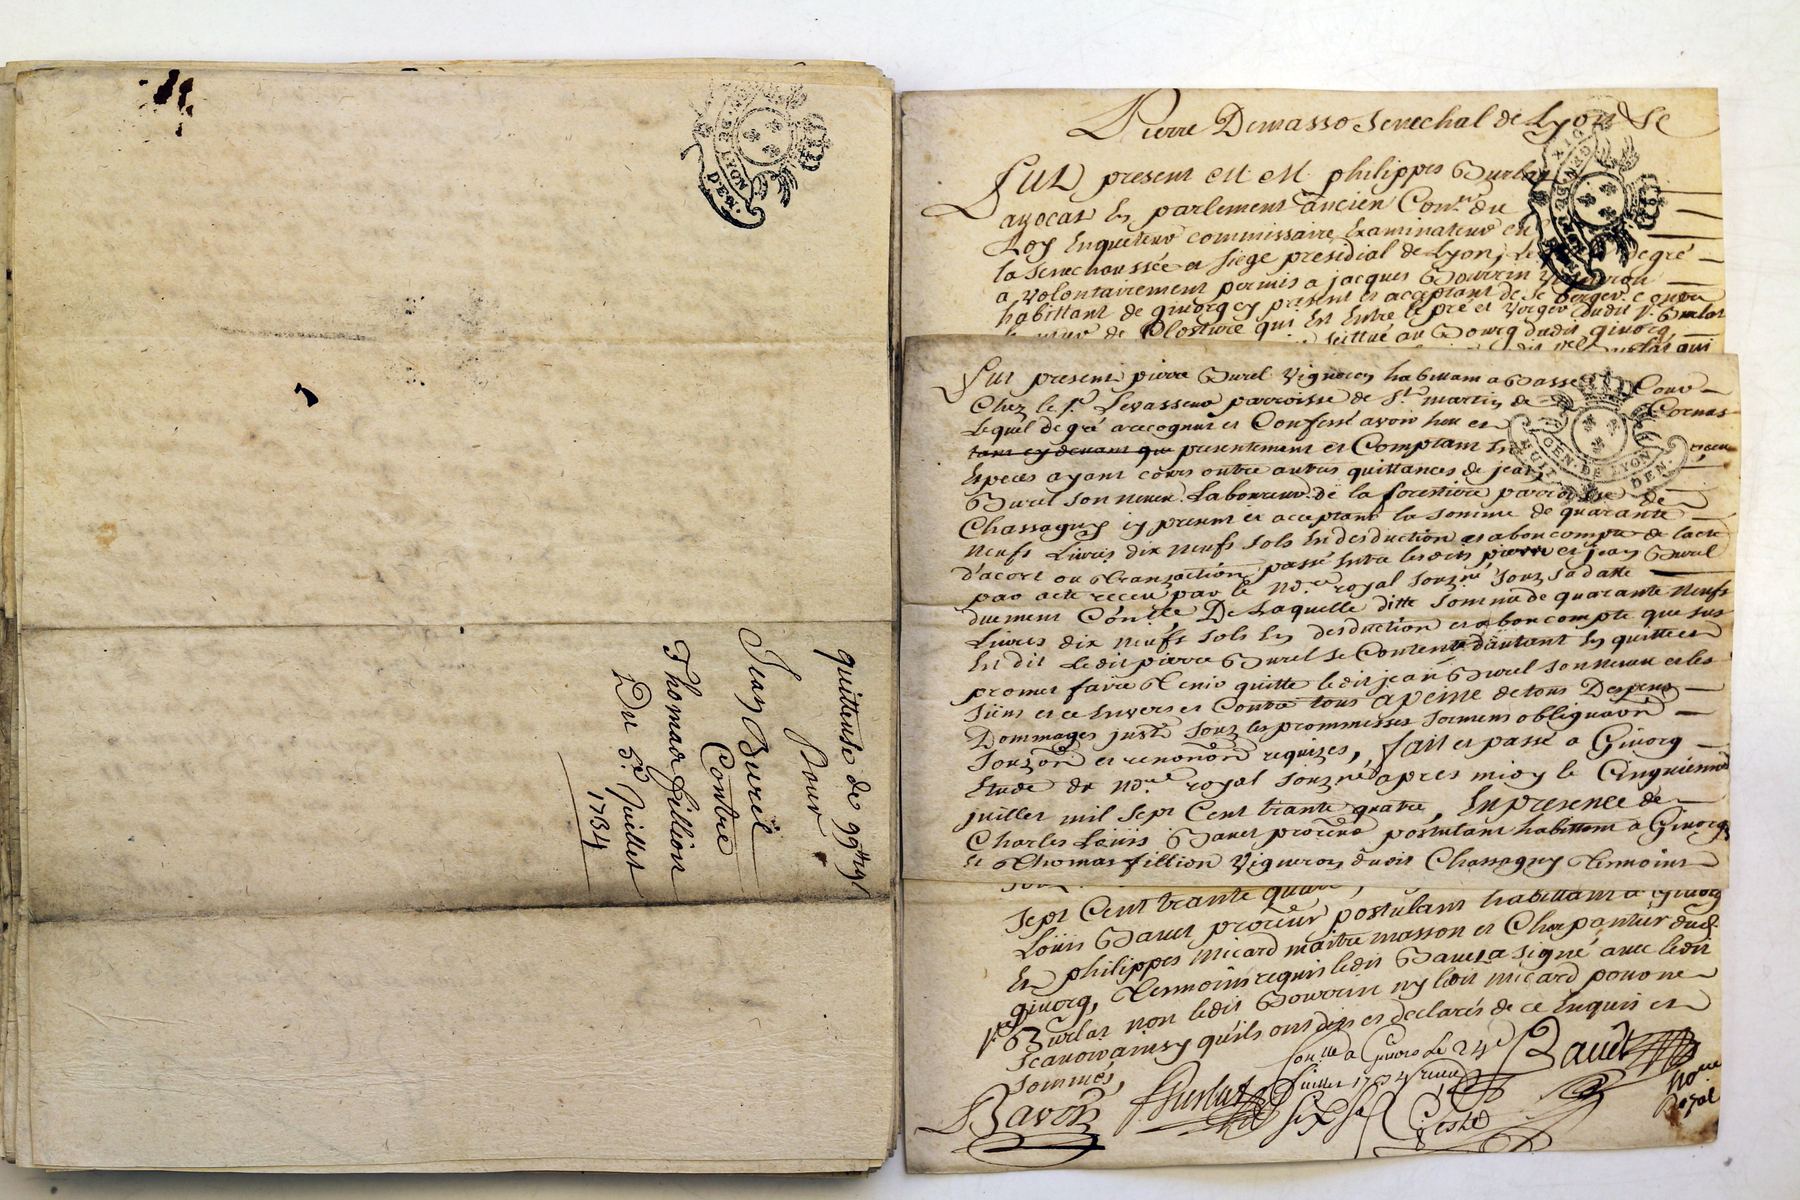 quitteuse de 99tt 19s
Pour
Jean Burel
Contre
Thomas fillion
Du 5e. Juillet
1734
GEN. DE LYON
DEN.
Pierre Demasso Senechal de Lyon &c
Fut present M M philippes Burlat
avocat En parlement ancien Coner du
Roy Enqueteur commissaire Examinateur en
la Senechaussée et siege presidial de Lyon, degré
a volontairement permis a jacques Bourrin Vigneron
habittant de givorg cy present et acceptant de se berger contre
de Closture qui Est Entre le pré et Verger dudit Sr. Burlat
scittué au Bourg dudit givorg
Burlat qui
Fut present pierre Burel Vigneron habittant a Basse Cour
Chez le Sr. Levasseur parroisse de St. martin de Cornas
Lequel de gré a recognut et Confessé avoir heu et receu
tant cy devant que presentement et Comptant En
Especes ayant cours outre autres quittances de jean
Burel son neveu Laboureur de la forestiere parroisse de
Chassagny cy present et acceptant la somme de quarante
neufs Livres dix neufs sols En desduction et a bon compte de lacte
d'acort ou transaction passé Entre lesdits pierre et jean Burel
par acte receu par le Nore. royal souzné. souz sa datte
duement Con.lée De Laquelle ditte somme de quarante neufs
Livres dix neufs sols En desduction et a bon compte que sus
Est dit Ledit pierre Burel se Contente dautant En quitte et
promet faire tenir quitte ledit jean Burel son neveu et les
siens et ce Envers et Contre tous a peine de tous Despens
Dommages justé souz les promesses serment obligaõn
souzõn et renonõn requizes, fait et passé a Givorg
Etude du Nore. royal souzné apres midy le Cinquieme
juillet mil sept Cent trante quatre, En presence de
Charles Loüis Bavet procreur postulant habittant a Givorg
et Thomas fillion Vigneron dudit Chassagny temoins
sept Cent trante quatre,
Loüis Bavet procreur postulant habittant a Givorg
Et philippes micard maitre masson et Charpantier dudt.
givorg, temoins requis ledit Bavet a signé avec ledit
Sr. Burlat non ledit Bourrin ny ledit micard pour ne
scavoir ainsy quils ont dit et declarés de ce Enquis et
sommés,
Con.llé a Givors le 24e
Juillet 1734 receu
six s.
Bavet
Burlat
Baudt
Nore
Royal